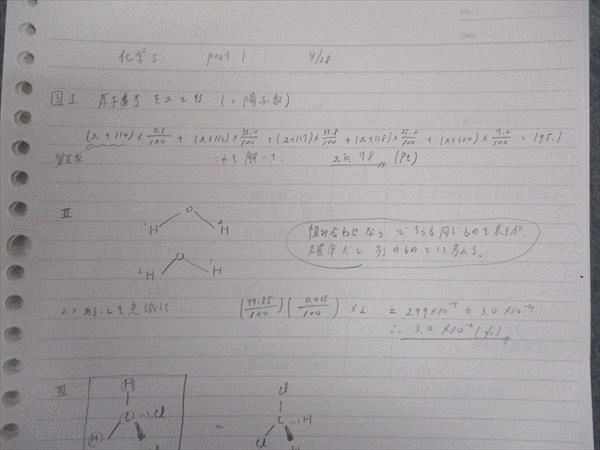 No.
Date
化学S part 1 4/28
I 原子番号をxとする (=陽子数)
(x+114)×0.8/100 + (x+116)×33.0/100 + (x+117)×33.8/100 + (x+118)×25.2/100 + (x+120)×7.2/100 = 195.1
これを解いて、 x≒78 (Pt)
II
O
H H
組み合わせならどちらも同じものを表すが、
確率だと別のものとして考える。
O
H H
(99.85/100)(0.015/100)×2 = 2.99×10⁻⁴ ≒ 3.0×10⁻⁴
∴ 3.0×10⁻² (%)
III
H
C Cl
H
=
Cl
C H
Cl